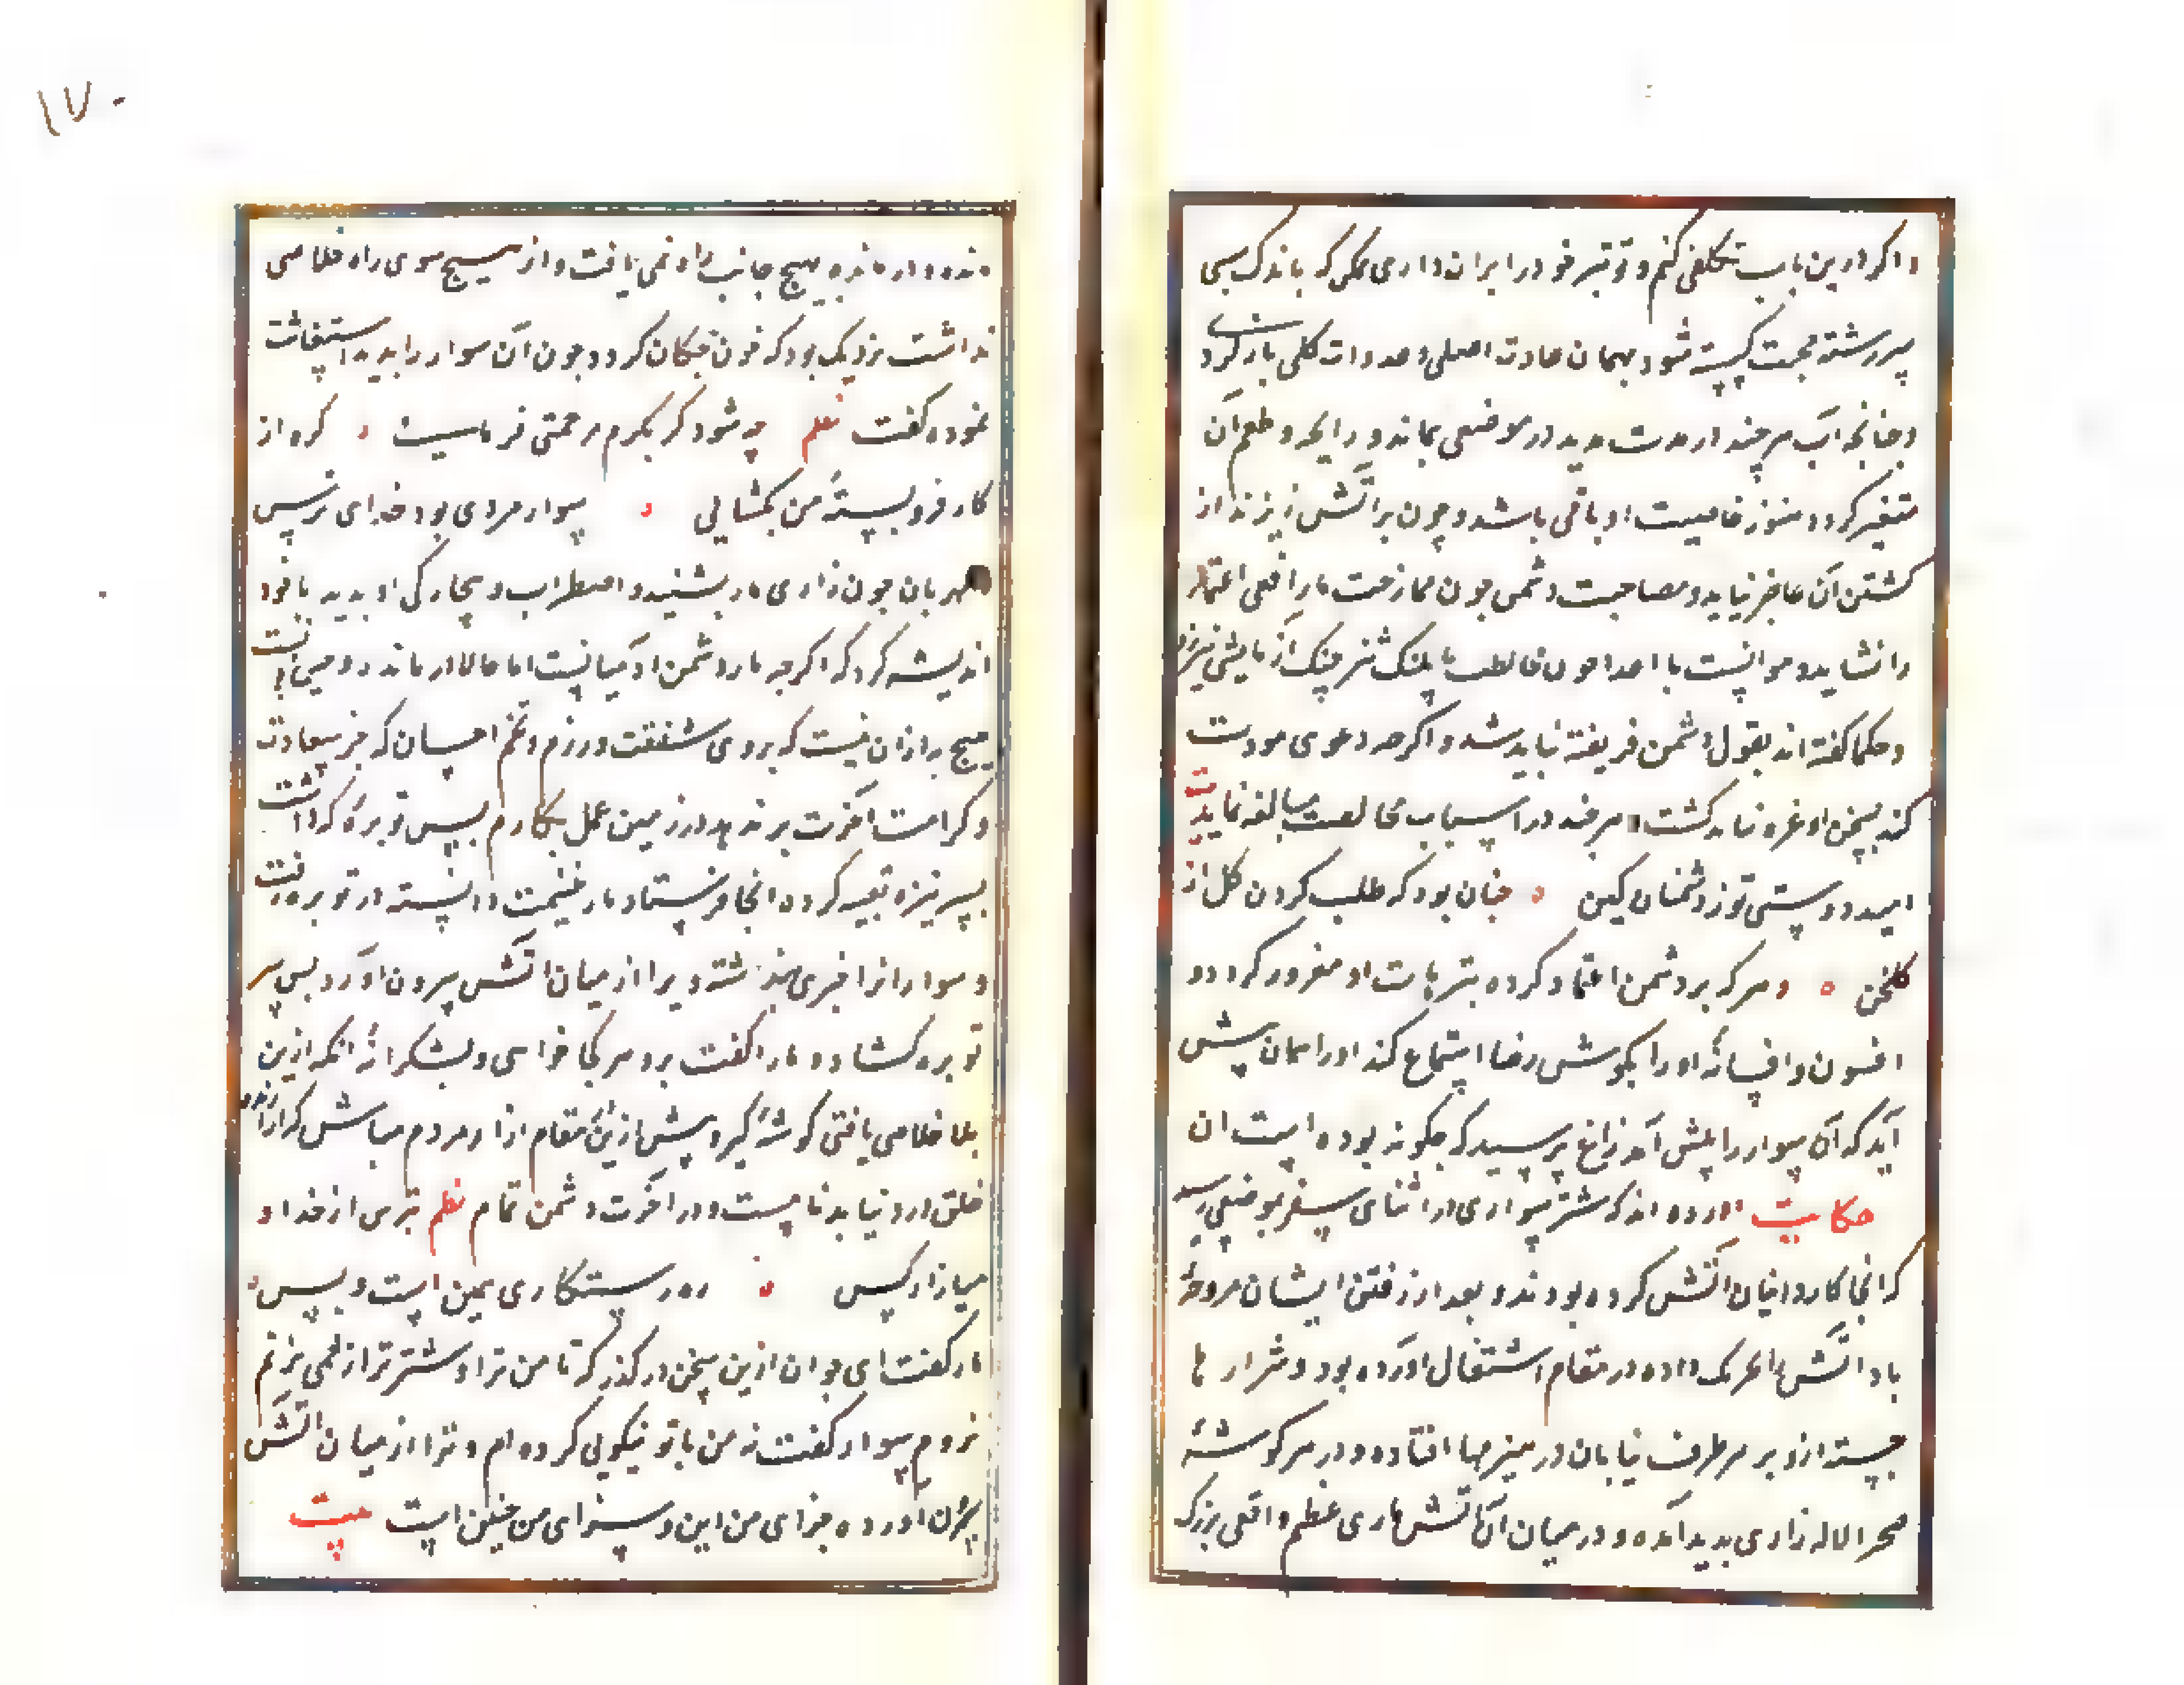 و اگر درین باب تکلفی کنم و تو نیز خود را بران داری ممکن که باندک سببی
سررشته محبت گسسته شود و بهمان عادت اصلی و عداوت کلی باز گردد
و چنانچه آب هر چند از مدت مدید در موضعی بماند و رایحه و طعم آن
متغیر گردد هنوز خاصیت او باقی باشد و چون بر آتش ریزند از
کشتن آن عاجز نیاید و مصاحبت دشمن چون ممازحت مار افعی اعتماد
را نشاید و موانست با اعدا چون مخالطت با پلنگ تیز چنگ آزمایش
و حکما گفته اند بقول دشمن فریفته نباید شد و اگرچه دعوی مودت
کند بسخن او غره نباید گشت هر چند در اسباب مخالصت مبالغه نماید بیت
امید دوستی تو ز دشمنان کهن ه چنان بود که طلب کردن گل از
گلخن ه و هر که بر دشمن اعتماد کرده بترهات او مغرور گردد و
افسون و افسانهٔ او را بگوش رضا استماع کند او را همان پیش
آید که آن سوار را پیش آمد زاغ پرسید که چگونه بوده است ان
حکایت آورده اند که شتر سواری در اثنای سفر بموضعی رسید
که آنجا کاروانیان آتش کرده بودند و بعد از رفتن ایشان مروحهٔ
باد آتش را تحریک داده در مقام اشتغال آورده بود و شرارها
جسته ازو بر هر طرف بیابان در هیزمها افتاده و در هر گوشهٔ
صحرا لاله زاری پدید آمده و در میان آن آتش ماری عظیم و افعی بزرگ
مانده و درمانده بهیچ جانب راه نمی یافت و از هیچ سوی راه خلاصی
نداشت نزدیک بود که خون چکان گردد چون آن سوار را بدید استغاثت
نموده گفت نظم چه شود گر بکرم رحمتی فرمایی ه گره از
کار فروبستهٔ من بگشایی ه سوار مردی بود خدای ترس
مهربان چون زاری مار بشنید و اضطراب و بیچارگی او بدید با خود
اندیشه کرد که اگرچه مار دشمن آدمیانست اما حالا درمانده و
هیچ به از آن نیست که بروی شفقت ورزم و تخم احسان که جز سعادت
و کرامت آخرت بر ندهد در زمین عمل بکارم پس توبرهٔ که داشت
بسر نیزه تعبیه کرده آنجا فرستاد مار غنیمت دانسته در توبره رفت
و سوار ویرا از میان آتش بیرون آورد پس سر
توبره گشاد و مار را گفت برو هر کجا خواهی و بشکرانهٔ آنکه ازین
بلا خلاصی یافتی گوشهٔ گیر و پیش ازین مقام آزار مردم مباش که آزارنده
خلق در دنیا بدنامست و در آخرت دشمن کام نظم بترس از خدا و
میازار کس ه ره رستگاری همین است و بس ه
مار گفت ای جوان ازین سخن درگذر که تا من ترا و شتر ترا زخمی نزنم
نروم سوار گفت نه من با تو نیکویی کرده ام و ترا از میان آتش
بیرون آورده جزای من این و سزای من چنین است بیت
۱۷۰